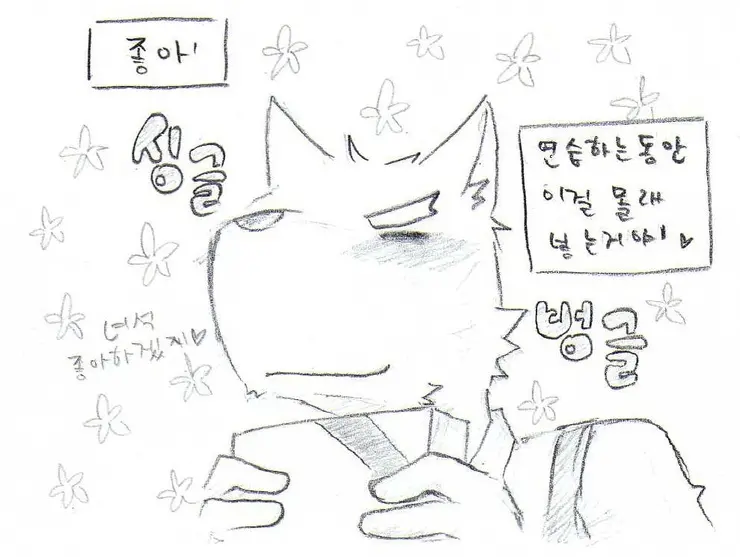 좋아!
싱글
연습하는동안
이걸 몰래
넣는거야! ♥
벙글
녀석
좋아하겠지♥